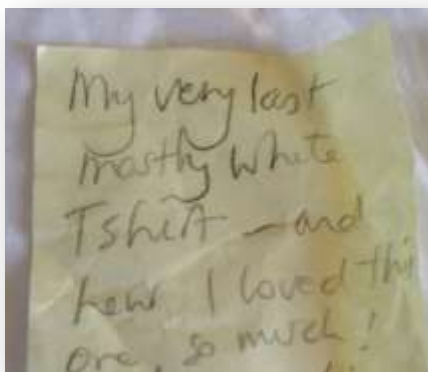 My very last
mostly white
Tshirt – and
how I loved this
one, so much!